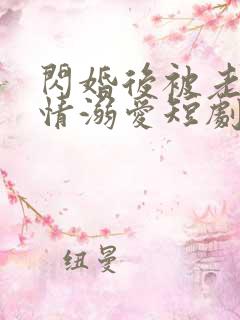 閃婚後被走
情溺愛短劇
纽曼